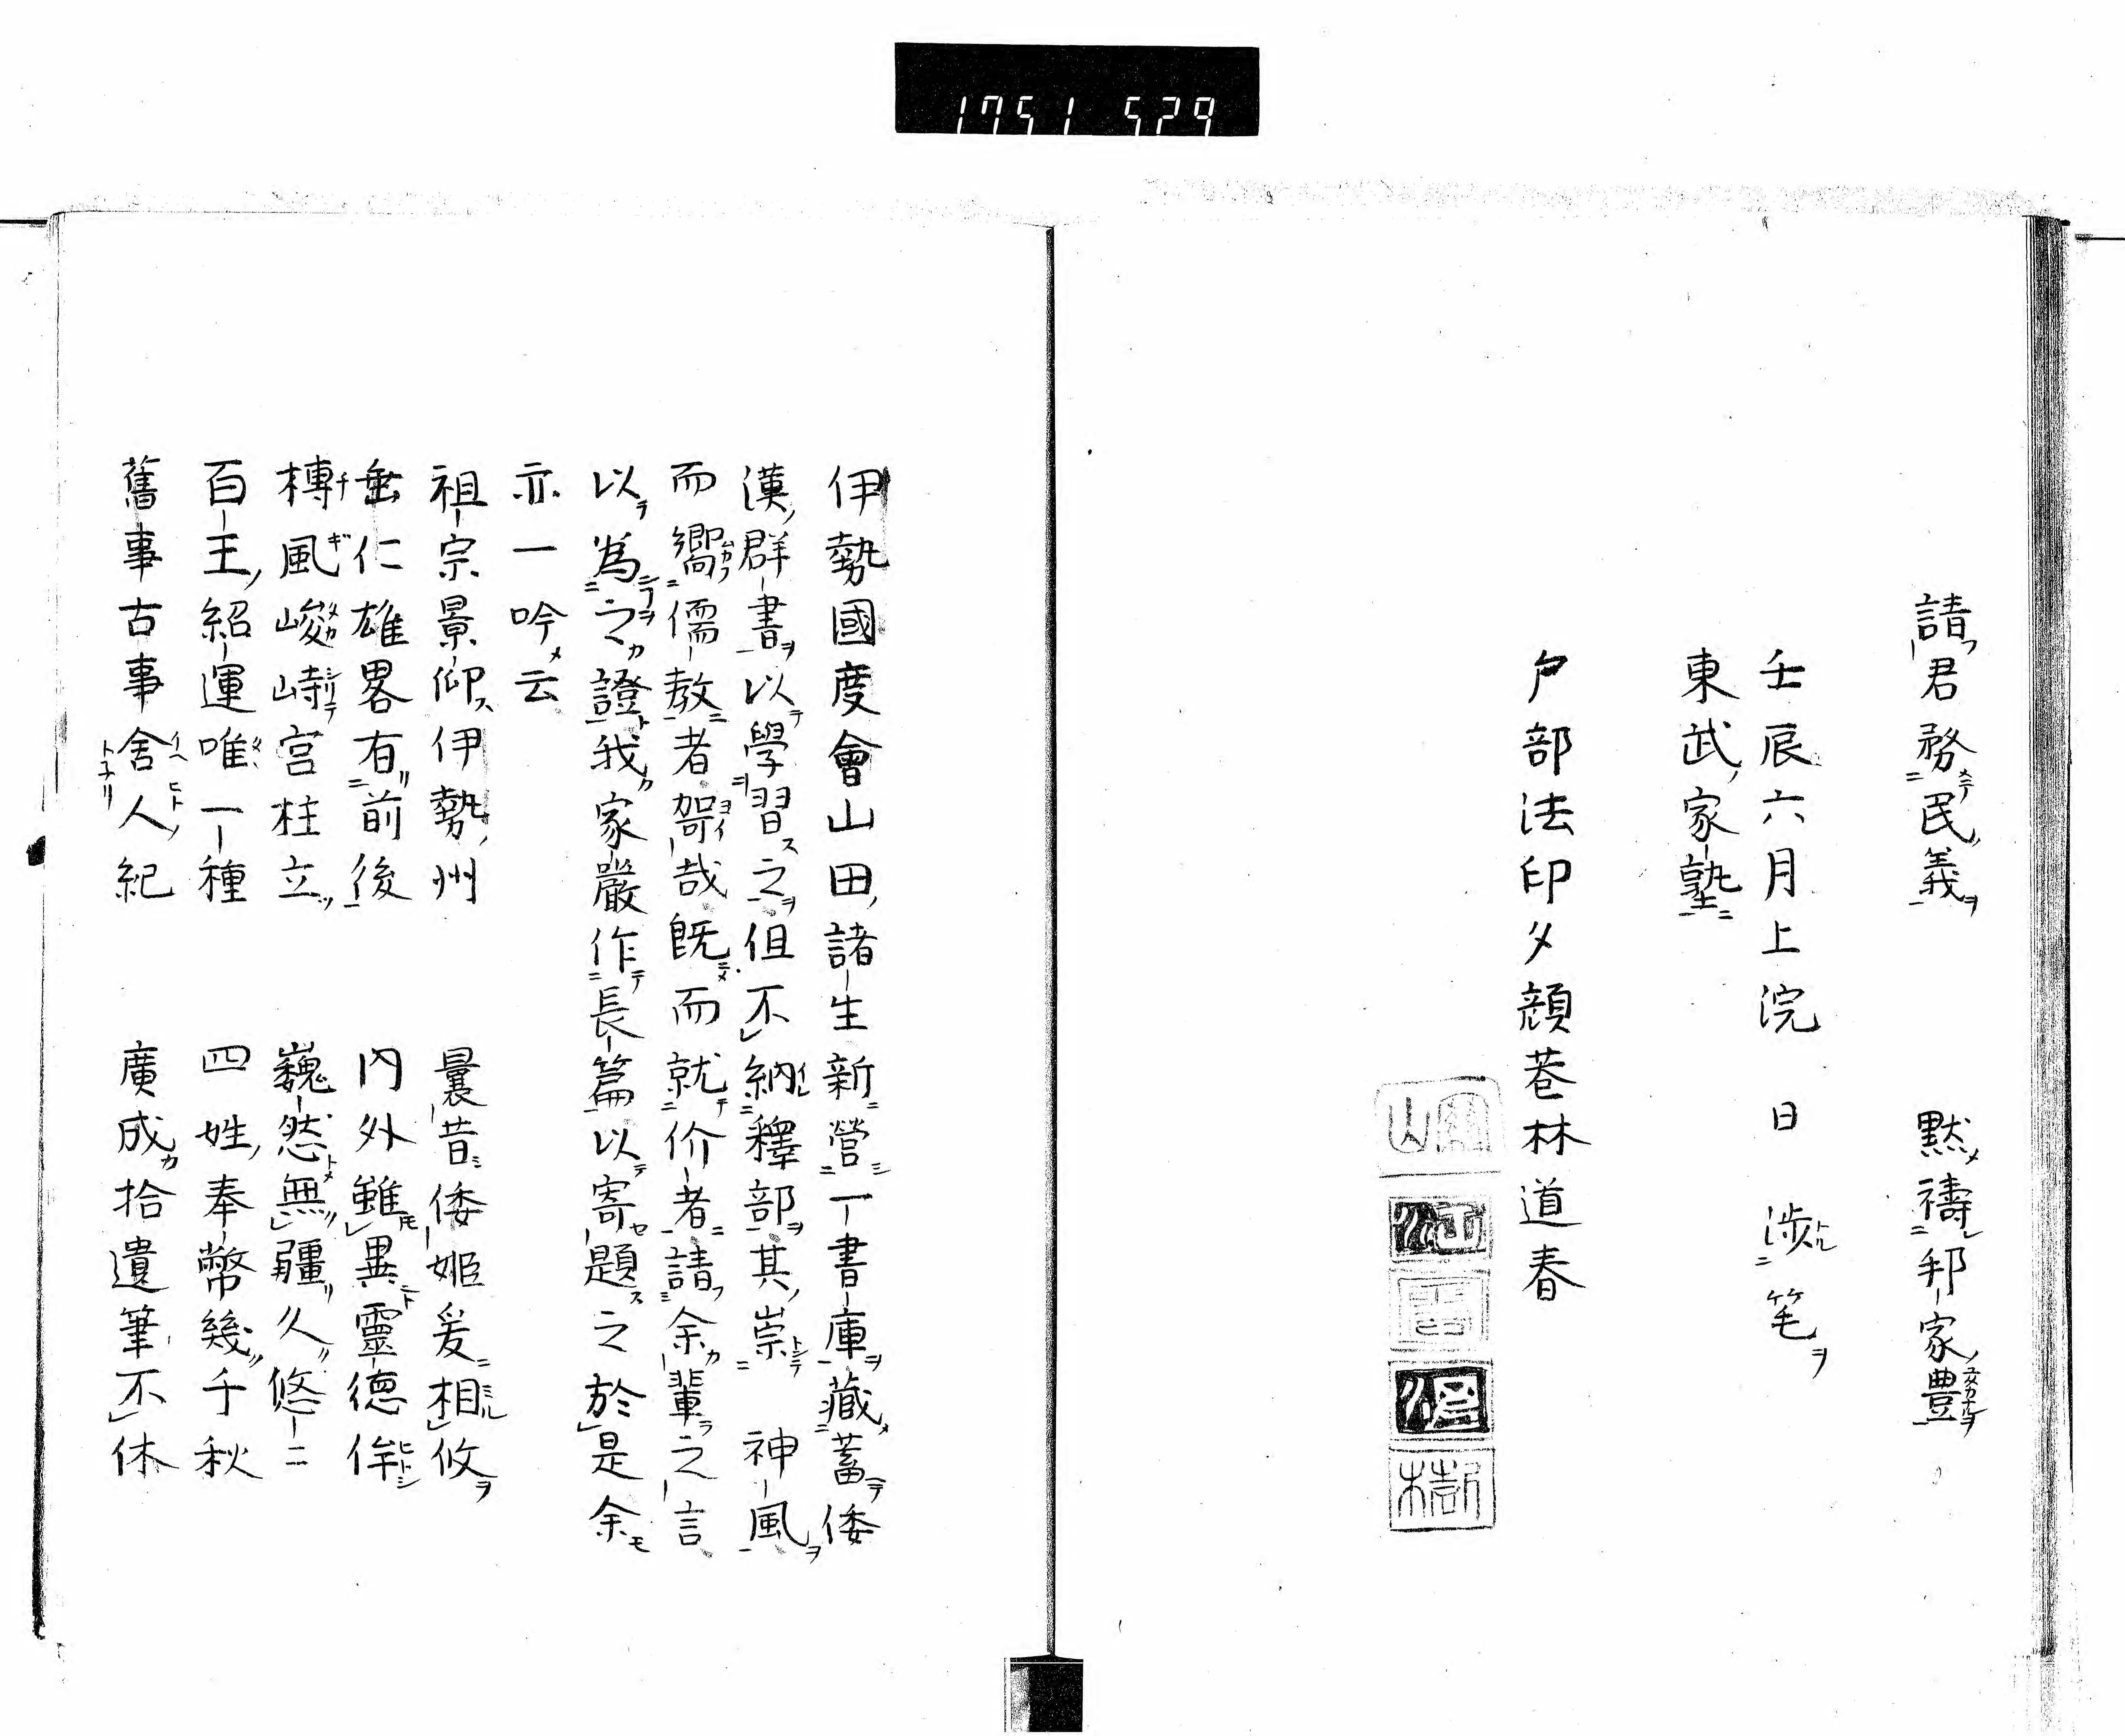 1751 529
請君務民義 默禱邦家豊
壬辰六月上浣 日 渉笔
東武家塾
戸部法印夕顔巷林道春
伊勢國度會山田諸生新營一書庫藏蓄倭
漢群書以學習之但不納釋部其崇 神風
而嚮儒教者哿哉既而就价者請余輩之言
以為之證我家嚴作長篇以寄題之於是余
亦一吟云
祖宗景仰伊勢州 曩昔倭姬爰相攸
垂仁雄畧有前後 内外雖異靈德侔
榑風峻峙宮柱立 巍然無疆久悠二
百王紹運唯一種 四姓奉幣幾千秋
舊事古事舍人紀 廣成拾遺筆不休